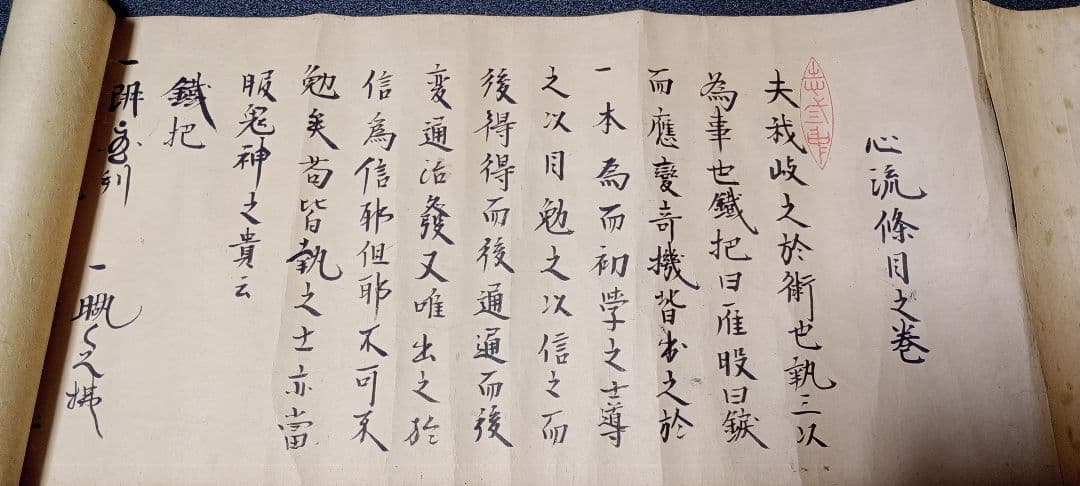 心流條目之卷
夫我歧之於術也執三以
為事也鐵把曰雁股曰鎩
而應變奇機皆出之於
一木為而初學之士導
之以目勉之以信之而
後得得而後通通而後
変通治發又唯出之於
信爲信耶但耶不可不
勉矣苟皆執之士亦當
服鬼神之貴云
鐵把
一
一 之拂